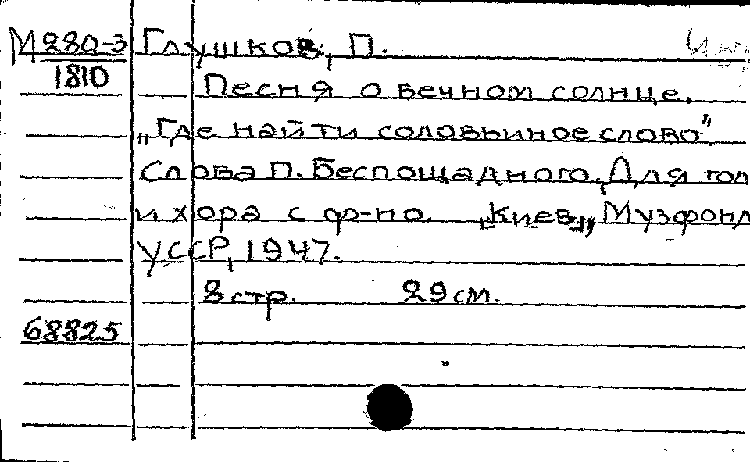 М 280-3 Глушков, П.
1810 Песня о вечном солнце.
„Где найти соловьиное слово".
Слова П. Беспощадного. Для гол
и хора с ф-но. „Киев„, Музфонд
УССР, 1947.
8 стр. 29 см.
68825